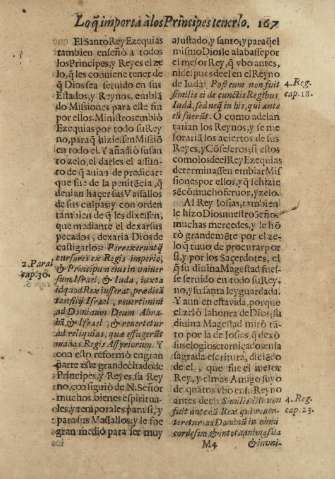 Lo q̃ importa à los Principes tenerlo. 167
El Santo Rey Ezequias
tambien enseñó a todos
los Principes, y Reyes el ze-
lo, q̃ les conuiene tener de
q̃ Dios sea seruido en sus
Estados, y Reynos, embiã
do Misiones para este fin
por ellos. Ministros embiò
Ezequias por todo su Rey
no, para q̃ hiziessen Missiõ
en todo el. Y añadiò su san-
to zelo, el darles el assun-
to de q̃ auian de predicar:
que fue de la penitẽcia, q̃
deuian hazer sus Vasallos
de sus culpas y con orden
tambien de q̃ les dixessen,
que mediante el dexar sus
pecados, dexaria Dios de
castigarlos: Perrexeruntq;
cursores ex Regis imperio,
& Principum eius in vniuer
sum Israel, & Iuda, iuxta
id quod Rex iusserat, prædicã
tes: filij Israel, reuertimini
ad Dominum Deum Abra-
hã, & Israel, & reuertetur
ad reliquias, quæ effugerũt
manus Regis Assyriorum. Y
con esto reformò en gran
parte este grande dechado de
Principes, y Reyes, su Rey
no, consiguiò de N. Señor
muchos bienes espiritua-
les, y temporales para si, y
para sus Vassallos, y le fue
gran medio para ser muy
2. Paral
cap. 30.
ajustado, y santo, y para q̃ el
mismo Dios le alabasse por
el mejor Rey, q̃ vbo antes,
ni despues deel en el Reyno
de Iuda: Post eum non fuit
similis ei de cunctis Regibus
Iuda, sed neq; in his, qui ante
eũ fuerũt. O como adelan
tarian los Reynos, y se me
jorariã los aciertos de sus
Reyes, y Cõsejeros, si estos
como los de el Rey Ezequias
determinassen embiar Mis
siones por ellos, y q̃ se hizies
sẽ con mucho feruor, y zelo.
Al Rey Iosias, tambien
le hizo Dios nuestro Señor
muchas mercedes, y le hõ
rò grandemẽte por el zelo,
q̃ tuuo de procurar por
si, y por los Sacerdotes, el
q̃ su diuina Magestad fues-
se seruido en todo su Rey-
no, y su santa ley guardada.
Y aun en esta vida, porque
el zelò la honra de Dios, su
diuina Magestad mirò tã-
to por la de Iosias, q̃ dexò
sus elogios eternizados en la
sagrada escritura, diciẽdo
de el, que fue el mejor
Rey, y el mas Amigo suyo
de quantos vbo en su Reyno
antes de el: Similis illi non
fuit ante eũ Rex qui reuer-
teretur ad Dominũ in omni
corde suo, & in tota anima sua
4. Reg.
cap. 18.
4. Reg.
cap. 23.
M4
& in vni-